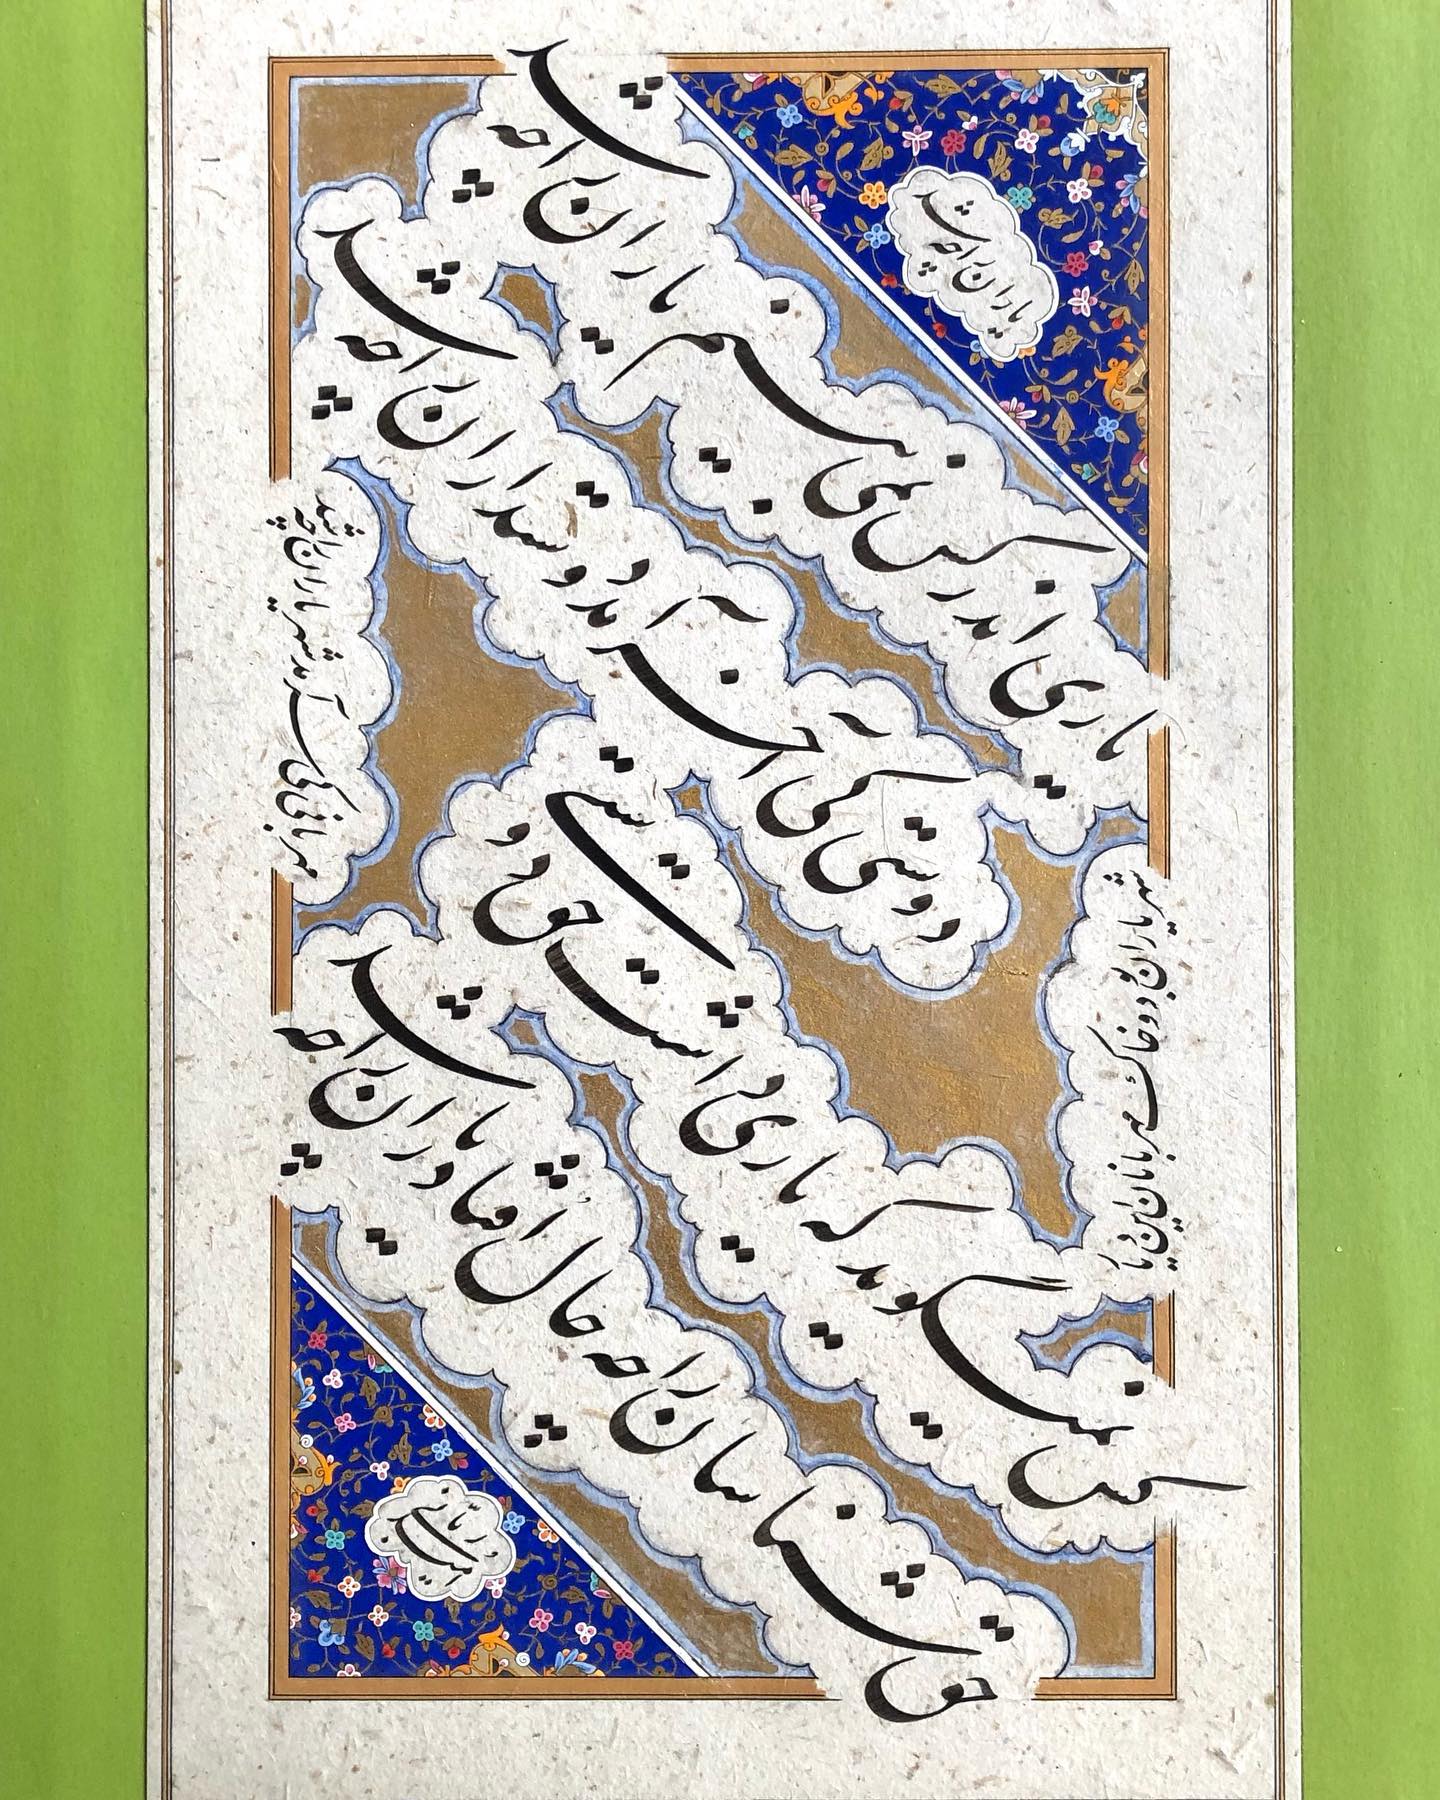 یاران را چه شد
یاری اندر کس نمی‌بینم یاران را چه شد
دوستی کی آخر آمد دوستداران را چه شد
شهر یاران بود و خاک مهربانان این دیار
مهربانی کی سر آمد شهریاران را چه شد
کس نمیگوید که یاری داشت حق دوستی
حق شناسان را چه حال افتاد یاران را چه شد